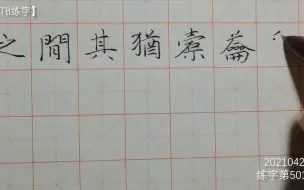 TB练字】
之間其猶橐籥
2021042
练字第50